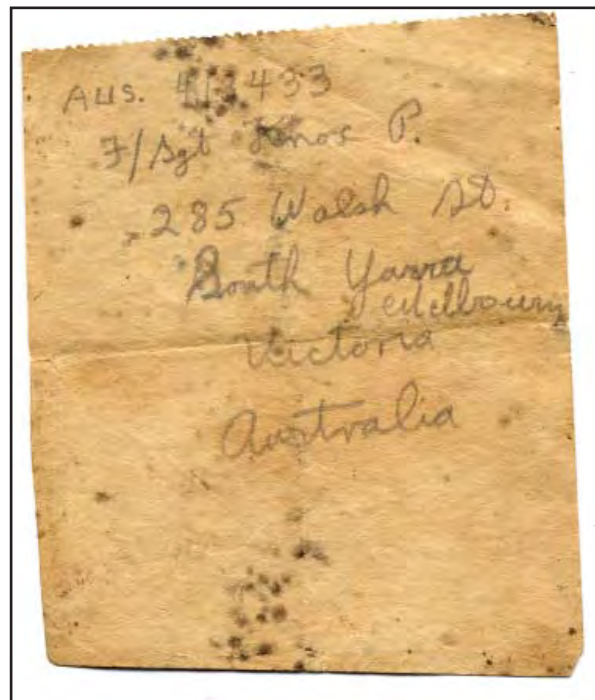 Aus.
F/Sgt Knox P.
285 Walsh St.
South Yarra
Melbourne
Victoria
Australia